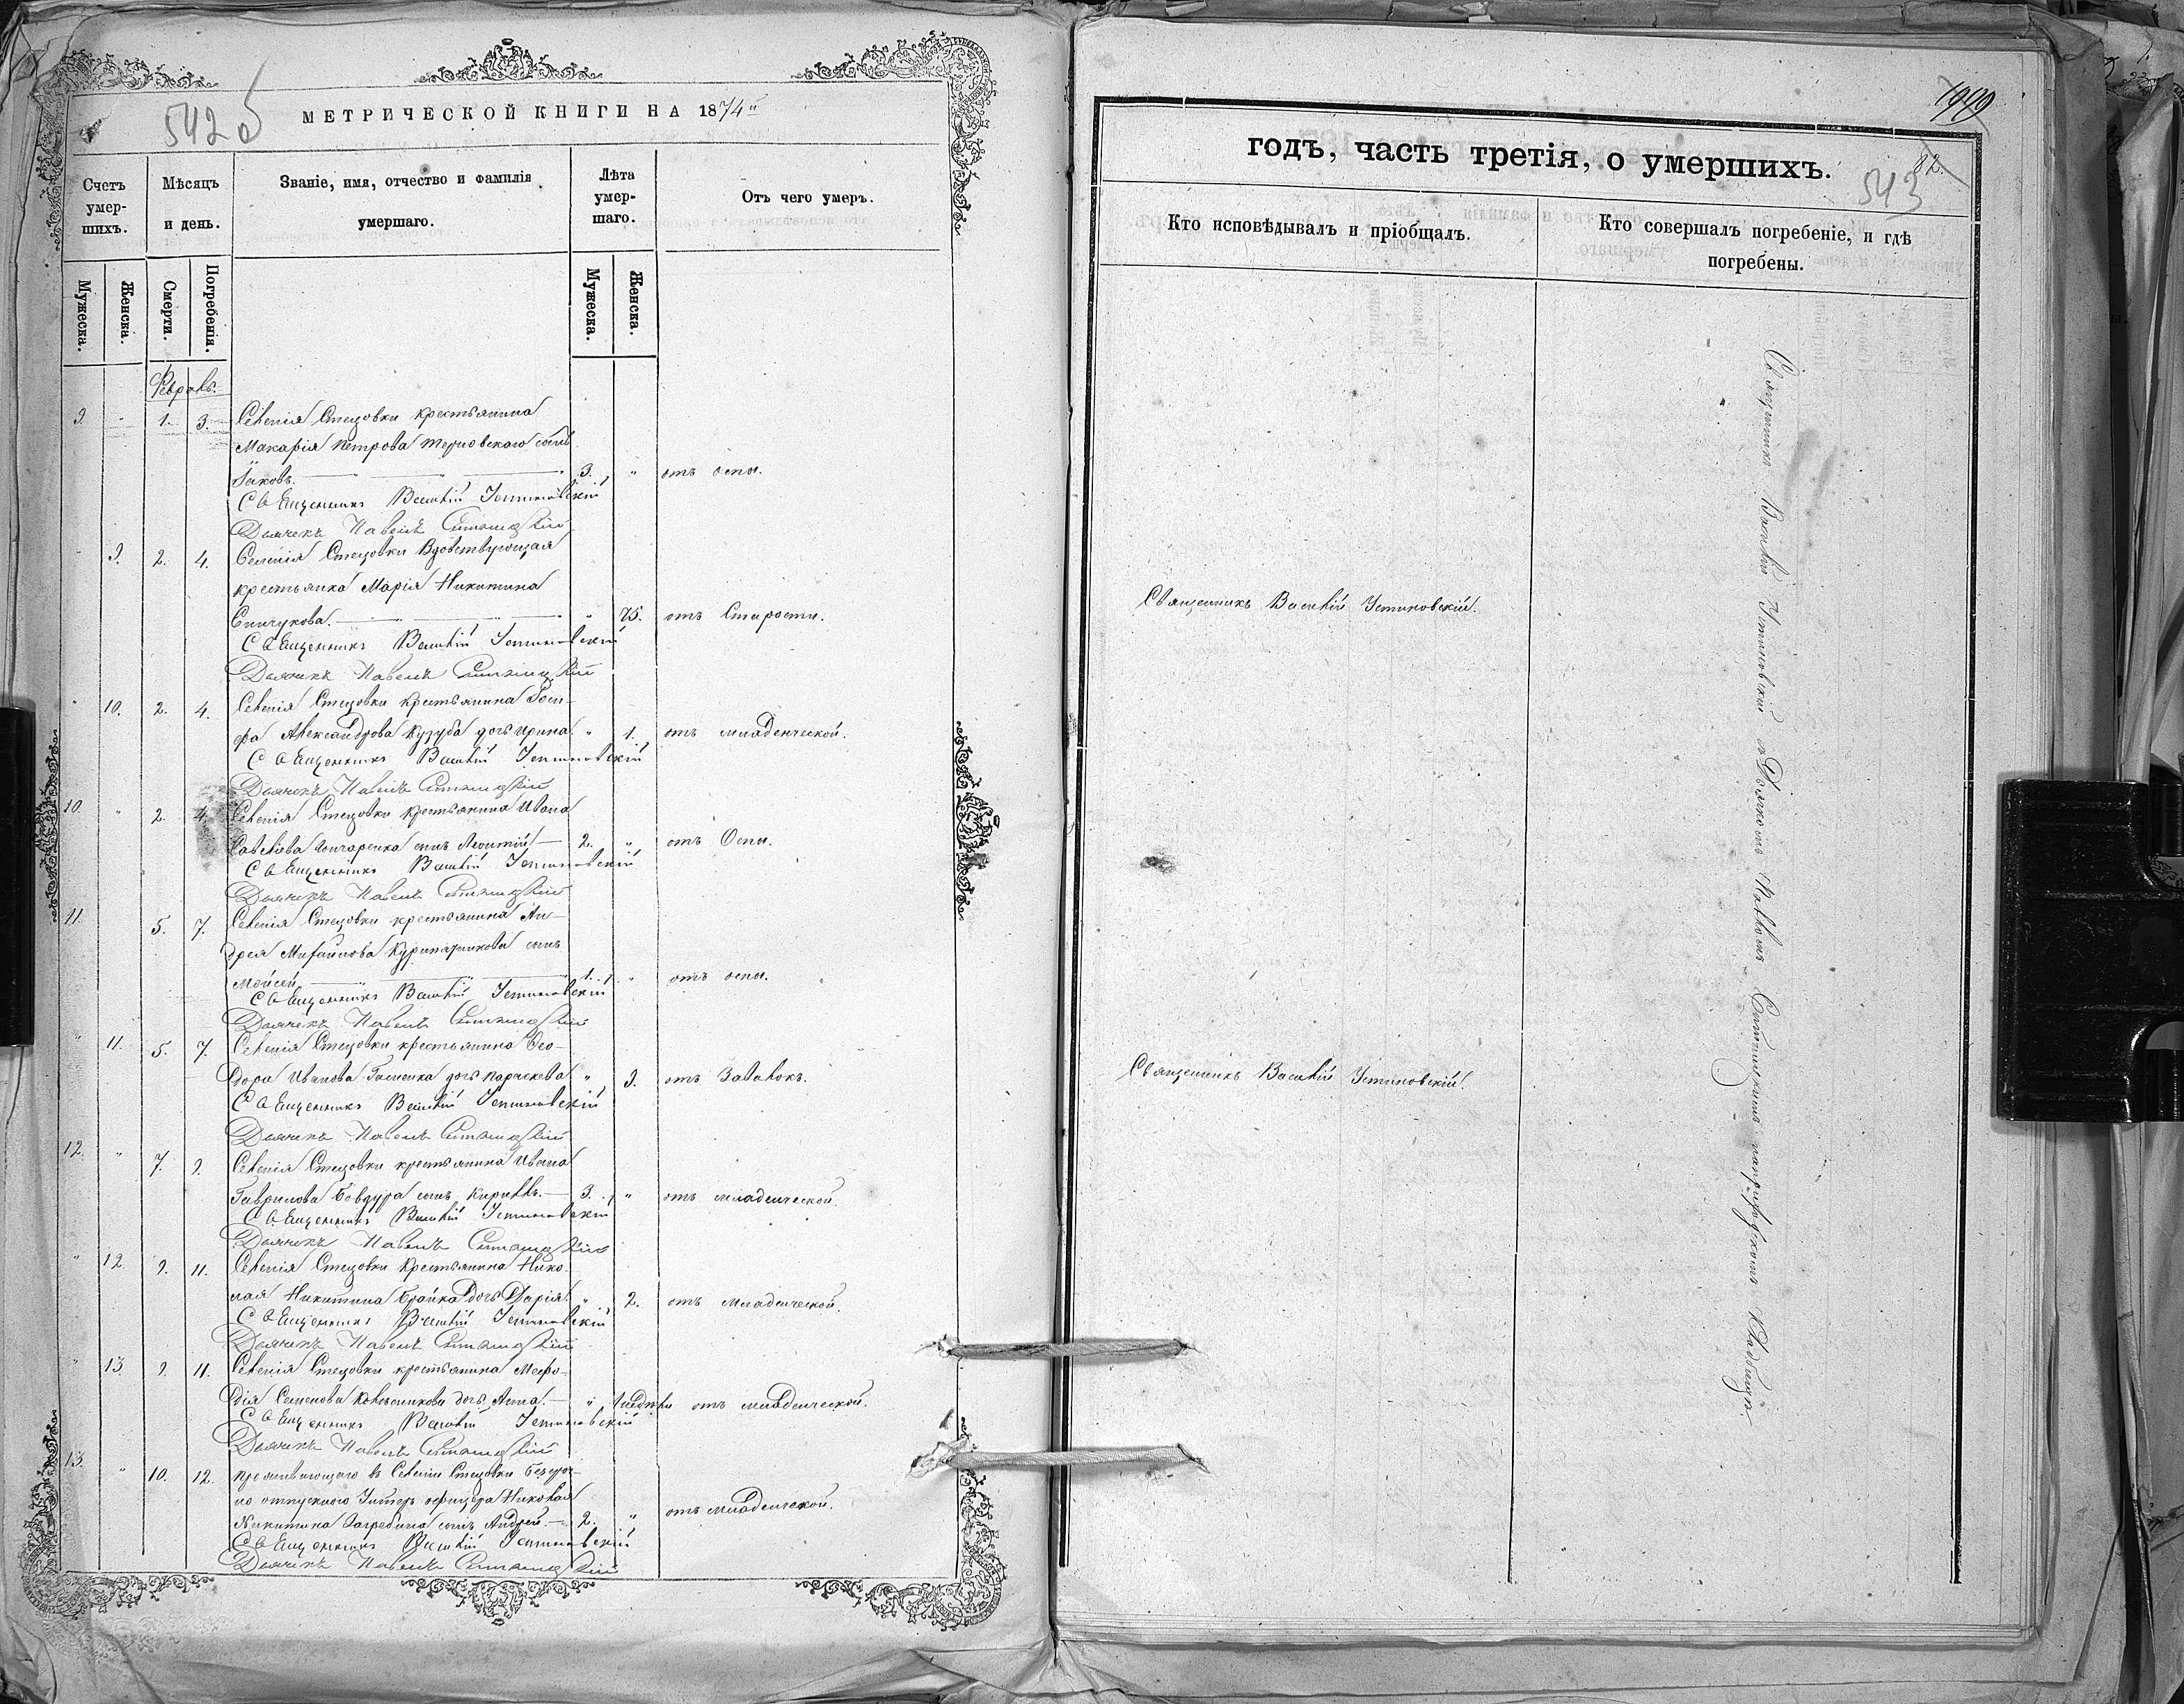 542 об
МЕТРИЧЕСКОЙ КНИГИ НА 1874й
Счетъ умер-шихъ.
Мѣсяцъ и день.
Званіе, имя, отчество и фамилія умершаго.
Лѣта умер-шаго.
Отъ чего умеръ.
Мужеска.
Женска.
Смерти.
Погребенія.
Мужеска.
Женска.
Февраль.
9. " 1. 3. Селенія Стецовки крестьянина
Макарія Петрова Терновского сынъ
Іаковъ. 3. " отъ оспы.
Священникъ Василій Устиновскій
Дьячекъ Павелъ
" 9. 2. 4. Селенія Стецовки Вдовствующая
крестьянка Марія Никитина
" 75. отъ Старости.
Священникъ Василій Устиновскій
Дьячекъ Павелъ
" 10. 2. 4. Селенія Стецовки крестьянина Іоси-
фа Александрова Кузуба дочь Ирина " 1. отъ младенческой.
Священникъ Василій Устиновскій
Дьячекъ Павелъ
10. " 2. 4. Селенія Стецовки крестьянина Ивана
Савелова Гончаренка сынъ Леонтій 2. " отъ Оспы.
Священникъ Василій Устиновскій
Дьячекъ Павелъ
11. 5. 7. Селенія Стецовки крестьянина Ан-
дрея Михайлова сынъ
Мойсей 1. " отъ оспы.
Священникъ Василій Устиновскій
Дьячекъ Павелъ
" 11. 5. 7. Селенія Стецовки крестьянина Ѳео-
дора Иванова дочь Параскева " 9. отъ Завалокъ.
Священникъ Василій Устиновскій
Дьячекъ Павелъ
12. " 7. 9. Селенія Стецовки крестьянина Ивана
Гаврилова Бовдура сынъ Кириллъ. 3. " отъ младенческой.
Священникъ Василій Устиновскій
Дьячекъ Павелъ
" 12. 9. 11. Селенія Стецовки Крестьянина Нико-
лая Никитина Брайка дочь Дарія. " 2. отъ младенческой.
Священникъ Василій Устиновскій
Дьячекъ Павелъ
" 13. 9. 11. Селенія Стецовки крестьянина Меѳо-
дія Семенова дочь Анна. " отъ младенческой.
Священникъ Василій Устиновскій
Дьячекъ Павелъ
13. " 10. 12. проживающаго въ Селеніи Стецовки безсроч-
но отпускного Унтеръ офицера Николая
Никитина Загребина сынъ Андрей. 2. " отъ младенческой.
Священникъ Василій Устиновскій
Дьячекъ Павелъ
годъ, часть третія, о умершихъ.
82.
543
Кто исповѣдывалъ и пріобщалъ.
Кто совершалъ погребеніе, и гдѣ погребены.
Священникъ Василій Устиновскій.
Священникъ Василій Устиновскій.
Священникъ Василій Устиновскій съ Дьячкомъ Павломъ на приходскомъ Кладбищѣ.